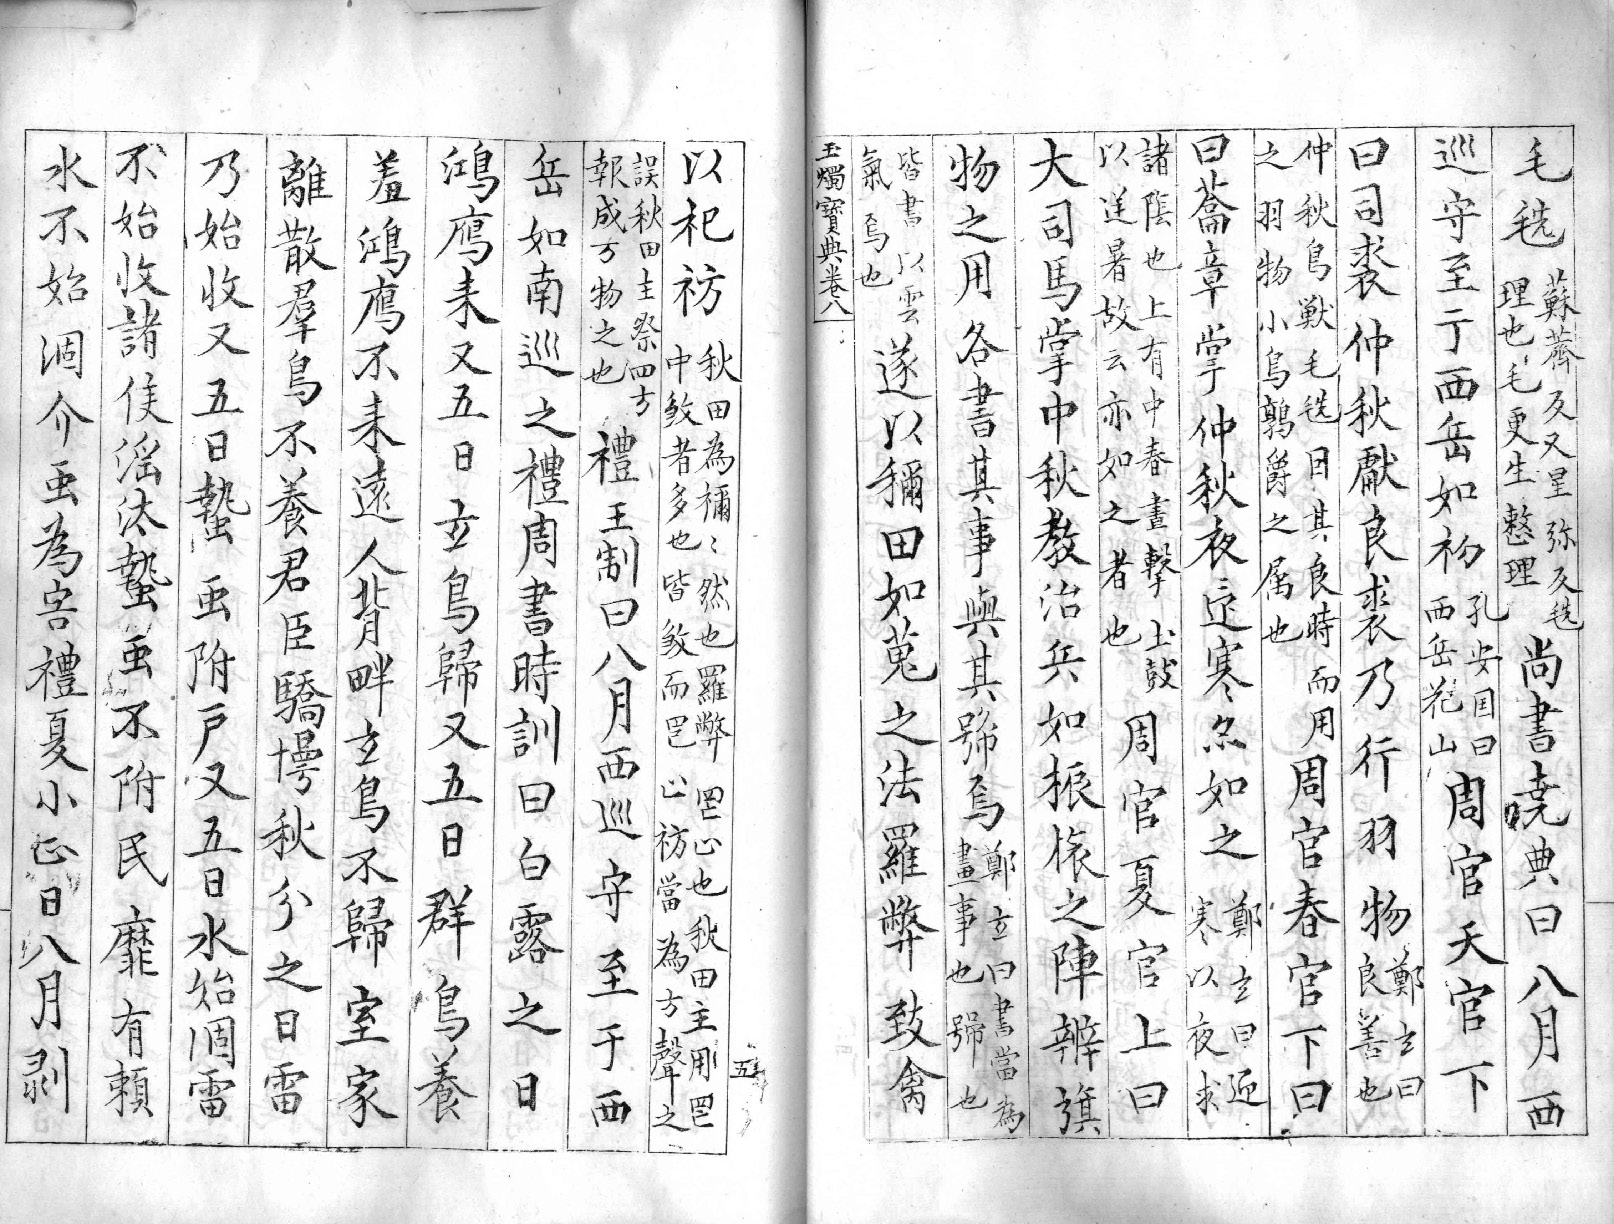 毛毨蘇薺反又星弥反毨理也毛更生整理尚書堯典曰八月西
巡守至于西岳如初孔安国曰西岳花山周官天官下
曰司裘仲秋獻良裘乃行羽物鄭玄曰良善也
仲秋鳥獣毛毨因其良時而用之羽物小鳥鶉爵之属也周官春官下曰
曰籥章掌仲秋夜迎寒亦如之鄭玄曰迎寒以夜求
諸陰也上有中春晝擊土鼓以逆暑故云亦如之者也周官夏官上曰
大司馬掌中秋教治兵如振旅之陣辨旗
物之用各書其事與其號焉鄭玄曰書當為畫事也號也
皆書以雲氣焉也遂以獮田如蒐之法羅弊致禽
玉燭寶典卷八
以祀祊秋田為獮〻然也羅弊罔止也秋田主用罔中殺者多也皆殺而罔止祊當為方聲之
五
誤秋田主祭四方報成万物之也禮王制曰八月西巡守至于西
岳如南巡之禮周書時訓曰白露之日
鴻鴈来又五日玄鳥歸又五日群鳥養
羞鴻鴈不来遠人背畔玄鳥不歸室家
離散羣鳥不養君臣驕慢秋分之日雷
乃始收又五日蟄虫附戸又五日水始涸雷
不始收諸侯滛汰蟄虫不附民靡有頼
水不始涸介虫為害禮夏小正曰八月剥